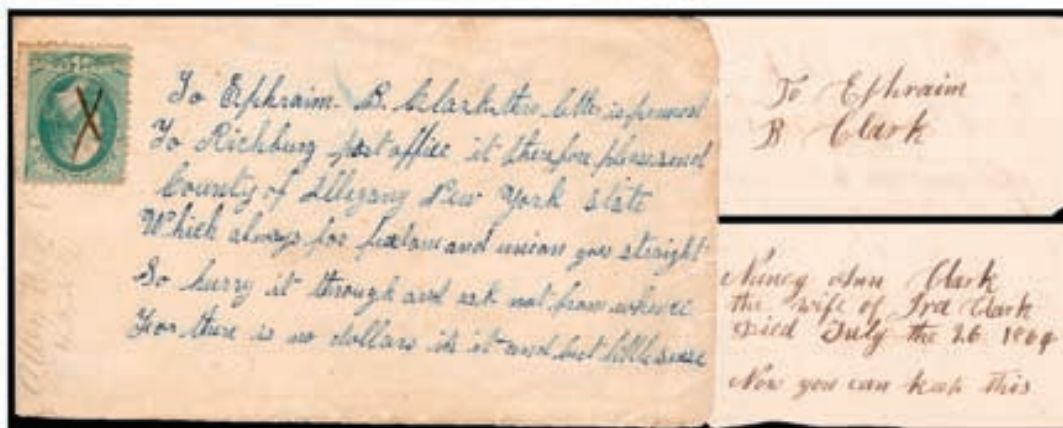 To Ephraim. B. Clark this letter is penned
To Richburg post office it therefore please send
County of Allegany New York state
Which always for freedom and union goes straight
So hurry it through and ask not from where
For there is no dollars in it and but little
To Ephraim
B Clark
Nancy Ann Clark
the wife of Ira Clark
Died July the 26 1869
Now you can keep this